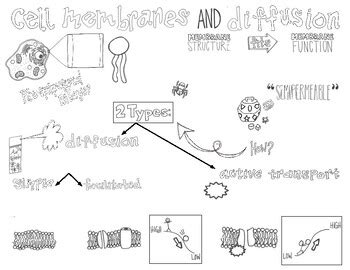 Cell membranes AND diffusion
MEMBRANE STRUCTURE
MEMBRANE FUNCTION
Phospholipid Bilayer
"SEMIPERMEABLE"
2 Types:
diffusion
How?
Simple
facilitated
active transport
HIGH
LOW
HIGH
LOW